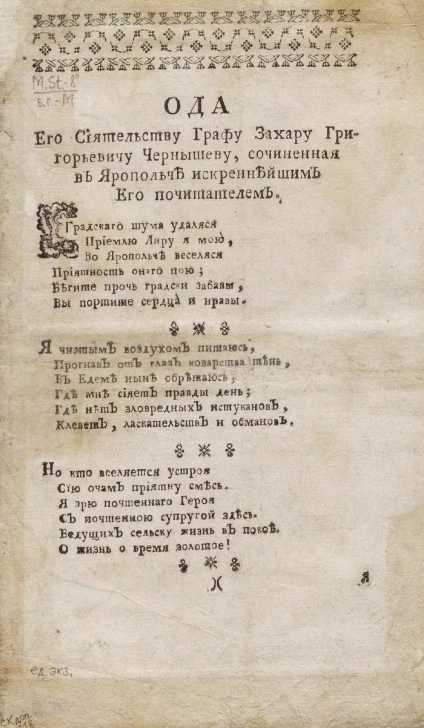 M.St.-8°
Б.Г.-М
ОДА
Его Сїятельству Графу Захару Гри-
горьевичу Чернышеву, сочиненная
въ Яропольчѣ искреннѣйшимъ
Его почитателемъ.
Градскаго шума удаляся
Прїемлю Лиру я мою,
Во Яропольчѣ веселяся
Прїятность онаго пою;
Бѣгите прочь градски забавы,
Вы портите сердца и нравы.
Я чистымъ воздухомъ питаюсь,
Прогнавъ отъ глазъ коварства тѣнь,
Въ Едемѣ нынѣ обрѣтаюсь;
Гдѣ мнѣ сїяетъ правды день;
Гдѣ нѣтъ зловредныхъ истукановъ,
Клеветъ, ласкательствъ и обмановъ.
Но кто вселяется устроя
Сїю очамъ прїятну смѣсь.
Я зрю почтеннаго Героя
Съ почтенною супругой здѣсь.
Ведущихъ сельску жизнь въ покоѣ.
О жизнь о время золотое!
)(
Я
ед. экз.